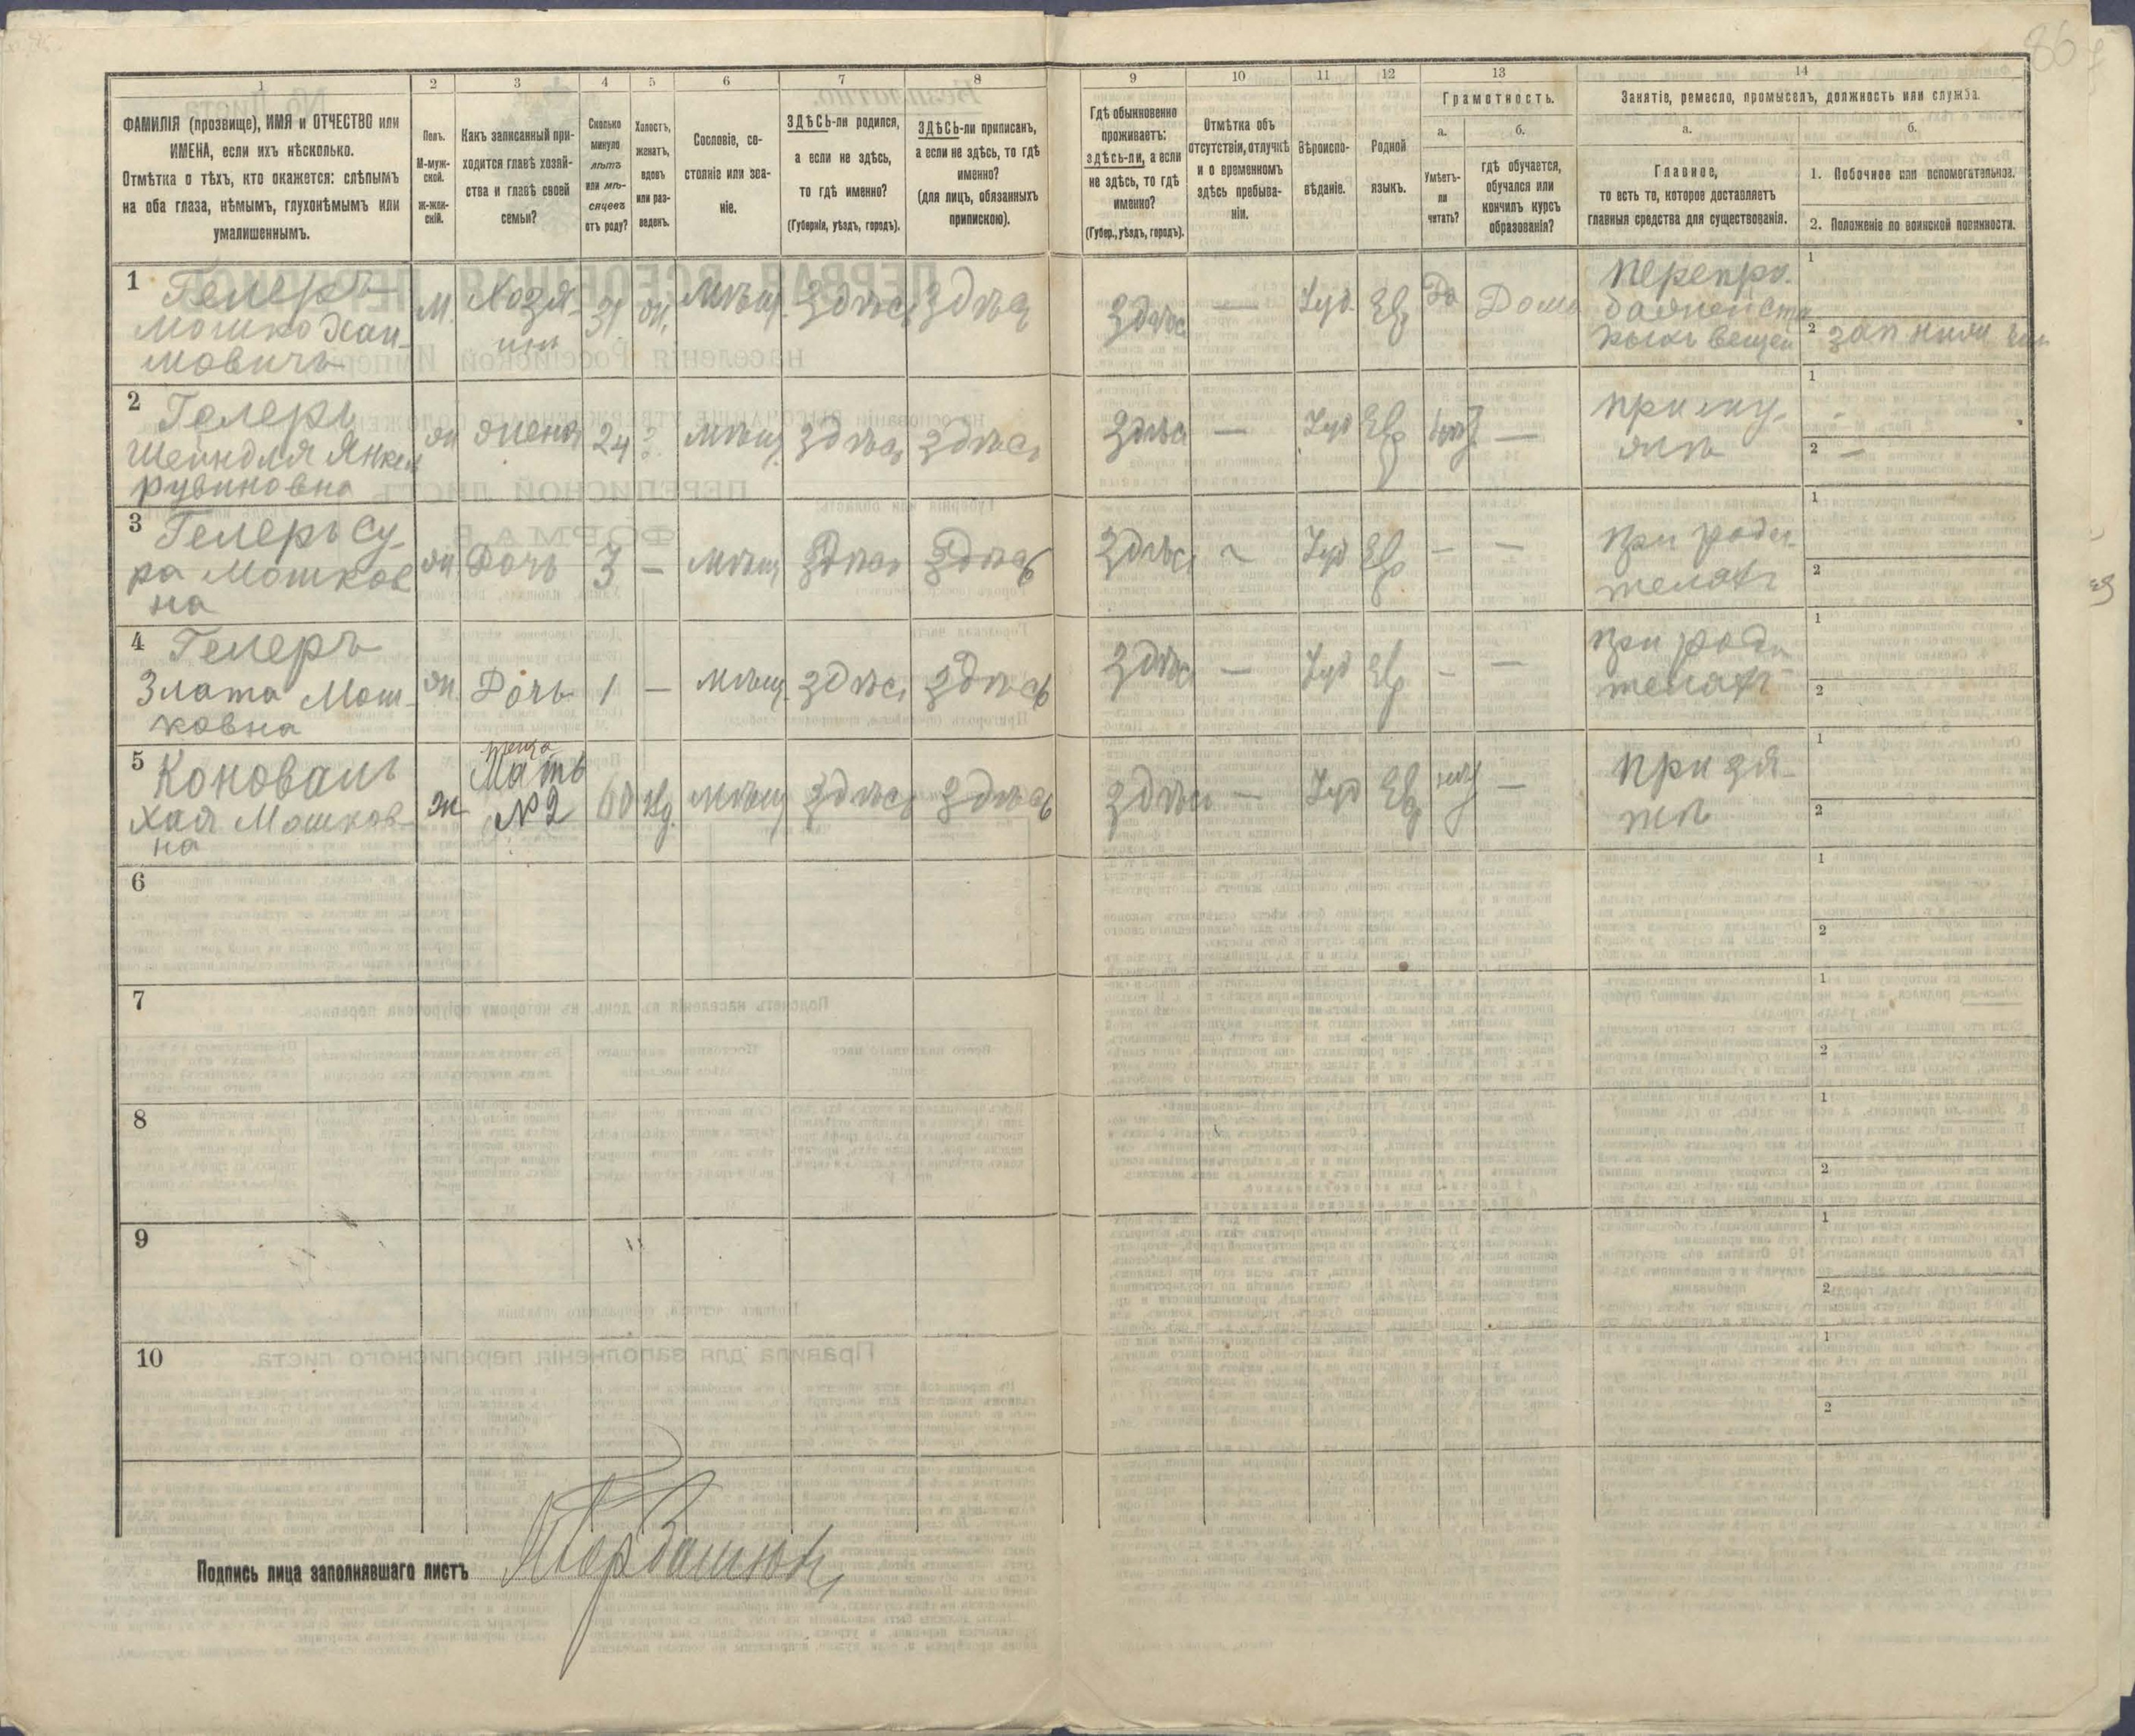 86
1
2
3
4
5
6
7
8
9
10
11
12
13
14
ФАМИЛІЯ (прозвище), ИМЯ и ОТЧЕСТВО или
ИМЕНА, если ихъ нѣсколько.
Отмѣтка о тѣхъ, кто окажется: слѣпымъ
на оба глаза, нѣмымъ, глухонѣмымъ или
умалишеннымъ.
Полъ.
М-муж-
ской.
ж-жен-
скій.
Какъ записанный при-
ходится главѣ хозяй-
ства и главѣ своей
семьи?
Сколько
минуло
лѣтъ
или мѣ-
сяцевъ
отъ роду?
Холостъ,
женатъ,
вдовъ
или раз-
веденъ.
Сословіе, со-
стояніе или зва-
ніе.
ЗДѢСЬ-ли родился,
а если не здѣсь,
то гдѣ именно?
(Губернія, уѣздъ, городъ).
ЗДѢСЬ-ли приписанъ,
а если не здѣсь, то гдѣ
именно?
(для лицъ, обязанныхъ
припискою).
Гдѣ обыкновенно
проживаетъ:
здѣсь-ли, а если
не здѣсь, то гдѣ
именно?
(Губер., уѣздъ, городъ).
Отмѣтка объ
отсутствіи, отлучкѣ
и о временномъ
здѣсь пребыва-
ніи.
Вѣроиспо-
вѣданіе.
Родной
языкъ.
Грамотность.
а.
Умѣетъ-
ли
читать?
б.
гдѣ обучается,
обучался или
кончилъ курсъ
образованія?
Занятіе, ремесло, промыселъ, должность или служба.
а.
Главное,
то есть то, которое доставляетъ
главныя средства для существованія.
б.
1. Побочное или вспомогательное.
2. Положеніе по воинской повинности.
1
Гелеръ
Мошко Хаи-
мовичъ
М.
Хозя-
инъ
31
ж.
Мѣщ.
Здѣсь
Здѣсь
Здѣсь
—
Іуд.
Евр
Да
Дома
Перепро-
дажей ста
рыхъ вещей
1
2
2
Гелеръ
Шейндля Янкел
рувиновна
ж
жена
24
?
мѣщ.
Здѣсь
Здѣсь
Здѣсь
—
Іуд
Евр
нѣтъ
—
при му-
жѣ
1
2 —
3
Гелеръ Су-
ра Мошков
на
ж
Дочь
3
—
мѣщ
Здѣсь
Здѣсь
Здѣсь
~
Іуд
Евр
—
—
при роди-
теляхъ
1
2
4
Гелеръ
Злата Мош-
ковна
ж
Дочь
1
—
мѣщ.
Здѣсь
Здѣсь
Здѣсь
—
Іуд
Евр
-
—
при роди
теляхъ
1
2
5
Коновалъ
Хая Мошков-
на
ж
теща
Мать
№2
60
вд.
мѣщ
Здѣсь
Здѣсь
Здѣсь
—
Іуд
Евр
нѣтъ
—
при зя-
тѣ
1
2
6
1
2
7
1
2
8
1
2
9
1
2
10
1
2
Подпись лица заполнявшаго листъ